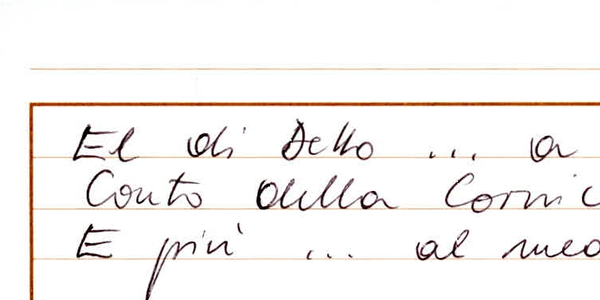 El di Dello ... a
Conto della Cornic
E più ... al med